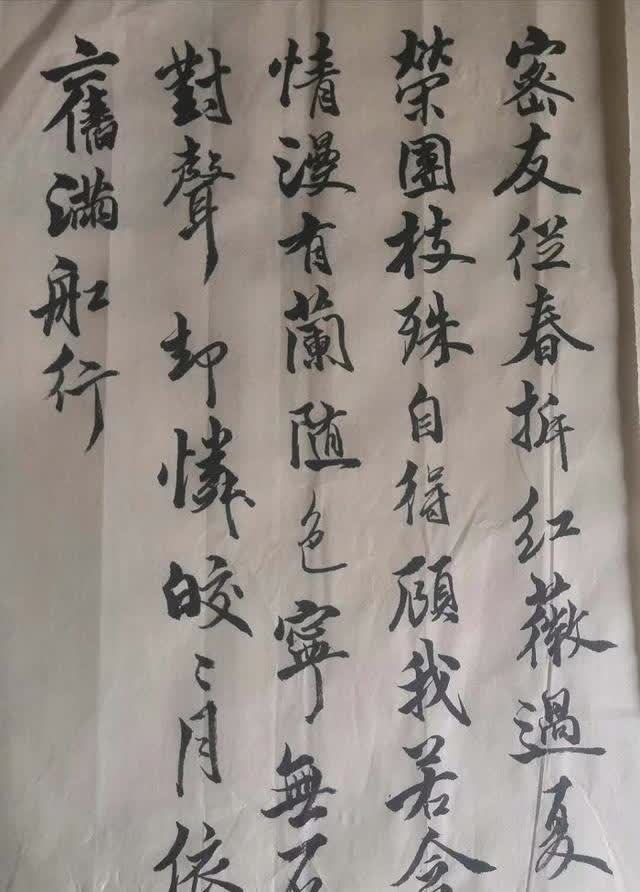 密友從春拆紅薇過夏
榮團枝殊自得顧我若含
情漫有蘭隨色寧無石
對聲却憐皎々月依
舊滿舡行